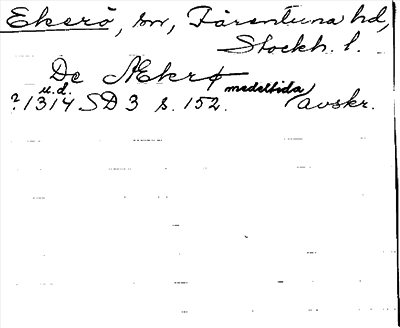 Ekerö, sn, Färentuna hd,
Stockh. l.
De Ækrø
?1314 u.d. SD 3 s. 152. medeltida avskr.